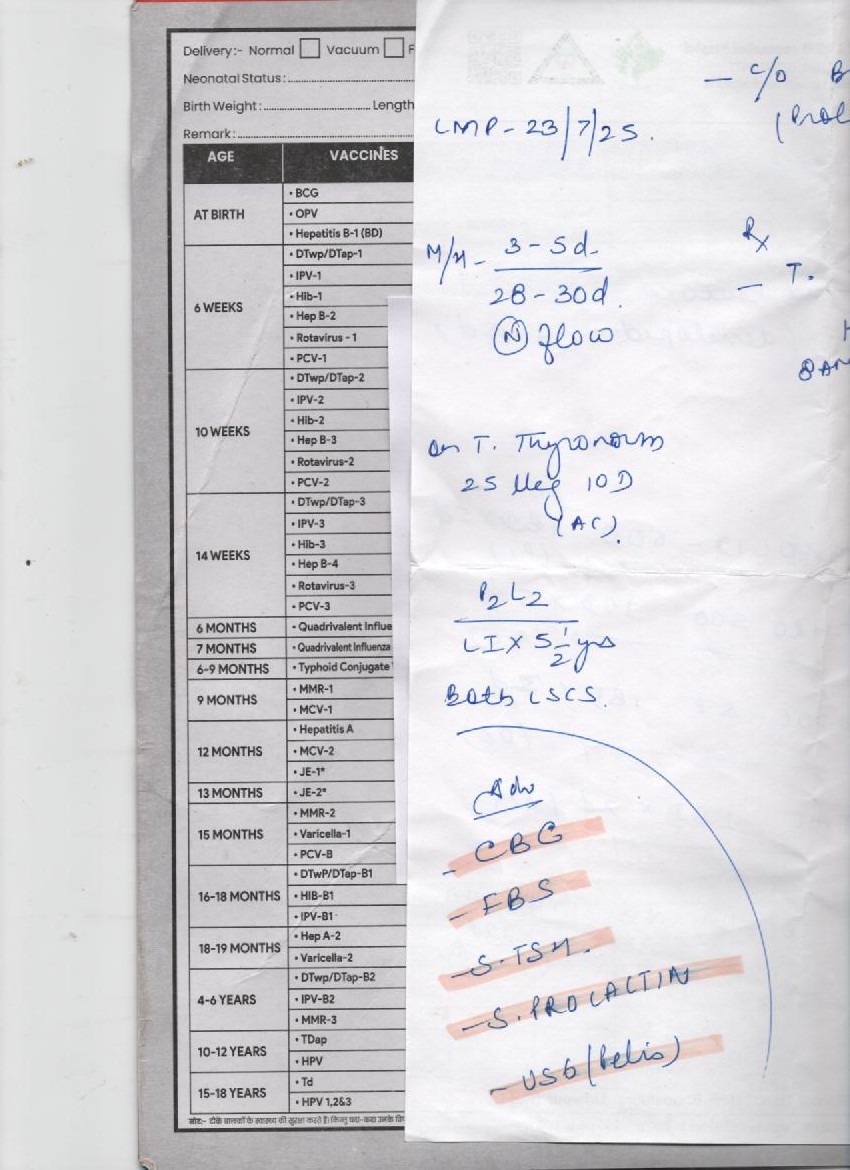 Delivery:- Normal Vacuum F
Neonatal Status:
Birth Weight: Length
Remark:
AGE VACCINES
AT BIRTH
• BCG
• OPV
• Hepatitis B-1 (BD)
6 WEEKS
• DTwp/DTap-1
• IPV-1
• Hib-1
• Hep B-2
• Rotavirus - 1
• PCV-1
10 WEEKS
• DTwp/DTap-2
• IPV-2
• Hib-2
• Hep B-3
• Rotavirus-2
• PCV-2
14 WEEKS
• DTwp/DTap-3
• IPV-3
• Hib-3
• Hep B-4
• Rotavirus-3
• PCV-3
6 MONTHS • Quadrivalent Influe
7 MONTHS • Quadrivalent Influenza
6-9 MONTHS • Typhoid Conjugate
9 MONTHS
• MMR-1
• MCV-1
12 MONTHS
• Hepatitis A
• MCV-2
• JE-1*
13 MONTHS • JE-2*
15 MONTHS
• MMR-2
• Varicella-1
• PCV-B
16-18 MONTHS
• DTwP/DTap-B1
• HIB-B1
• IPV-B1
18-19 MONTHS
• Hep A-2
• Varicella-2
4-6 YEARS
• DTwp/DTap-B2
• IPV-B2
• MMR-3
10-12 YEARS
• TDap
• HPV
15-18 YEARS
• Td
• HPV 1,2&3
नोट:- टीके बालकों के स्वास्थ्य की सुरक्षा करते हैं।
- C/O B
LMP - 23/7/25.
M/H - 3 - 5d
28 - 30d.
(N) flow
Rx
- T.
8 AM
on T. Thyronorm
25 Mcg 1OD
(AC).
P2L2
LI X 5 1/2 yrs
Both LSCS.
Adv
- CBC
- FBS
- S. TSH.
- S. PROLACTIN
- USG (Pelvis)